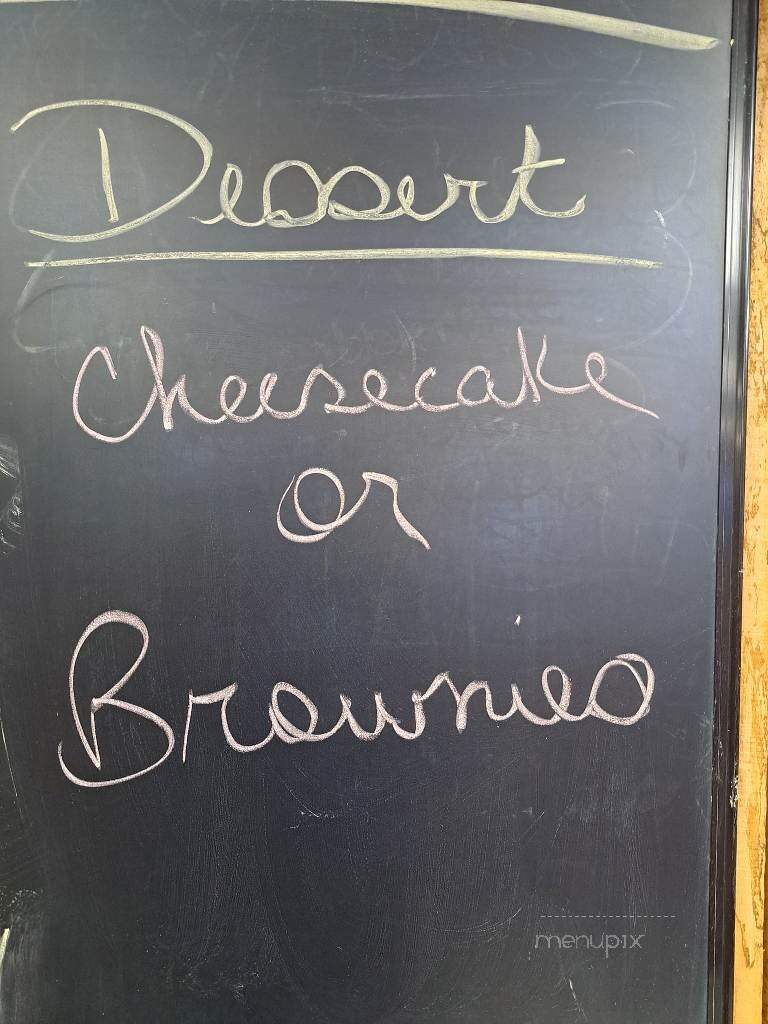 Dessert
Cheesecake
or
Brownies
menupix